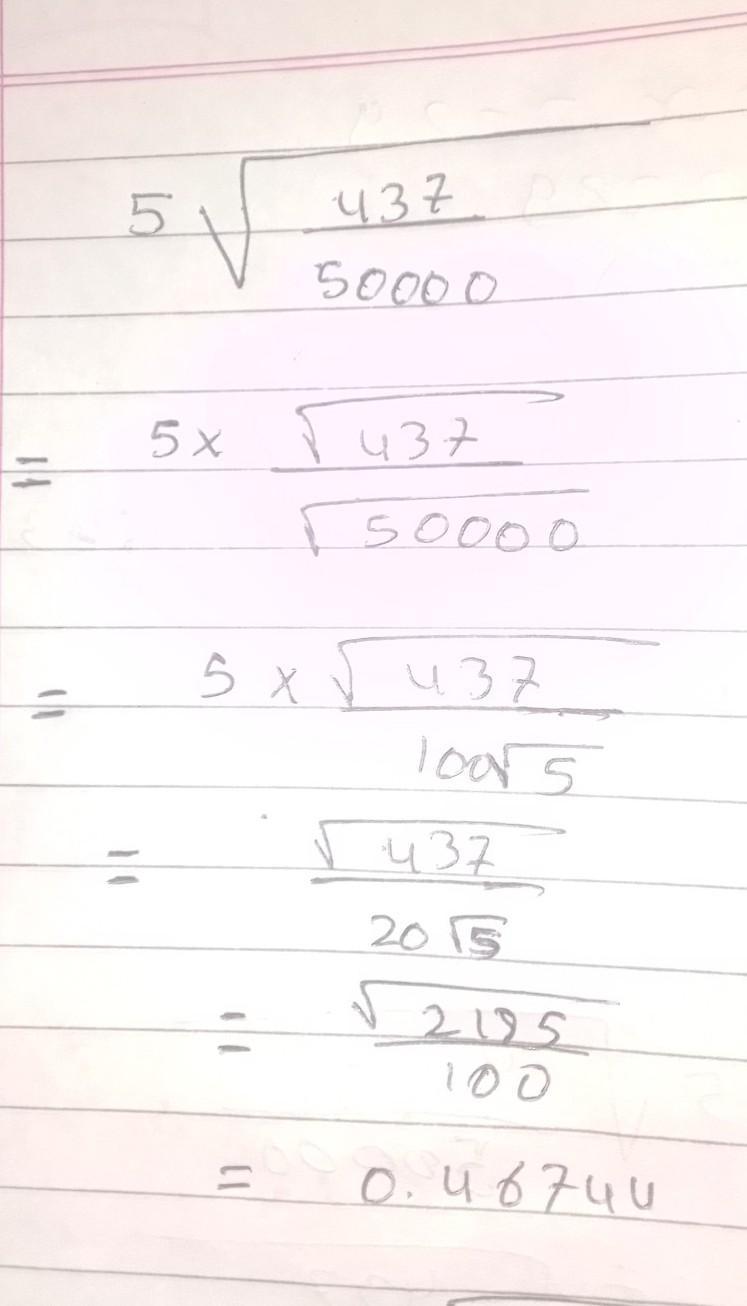 5 √ 437
50000
= 5 × √437
√50000
= 5 × √437
100√5
= √437
20√5
= √2195
100
= 0.46744